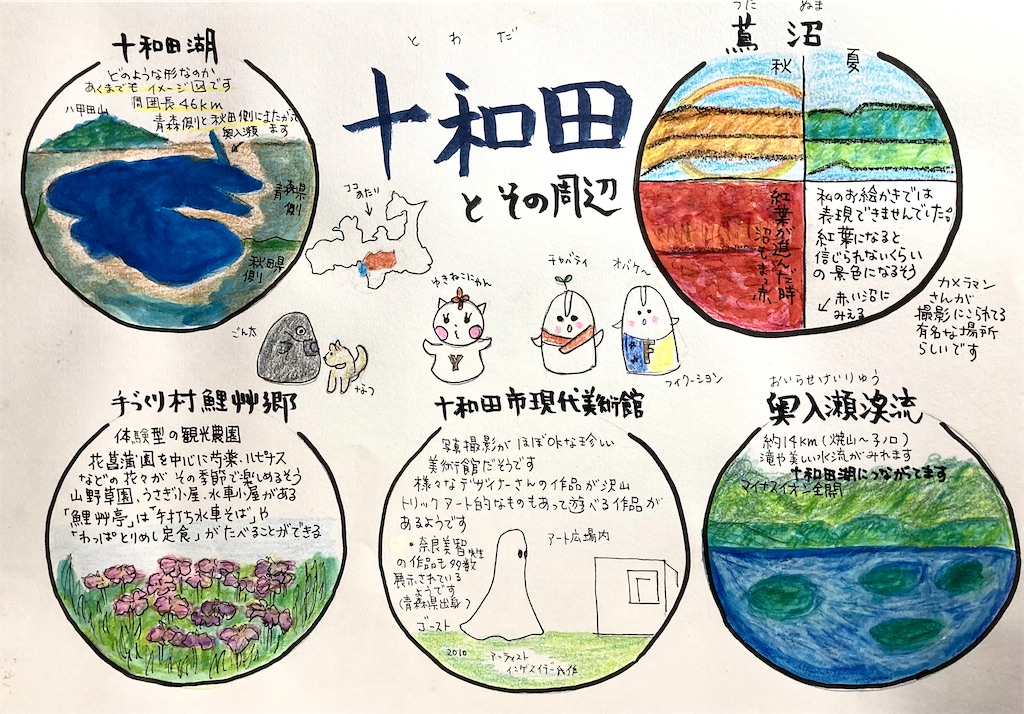 とわだ
十和田
とその周辺
十和田湖
どのような形なのか
あくまでもイメージ図です
周囲長46km
青森側と秋田側にまたがって
ます
八甲田山
奥入瀬
青森県
側
秋田県
側
ココ
あたり
つた ぬま
蔦沼
秋
夏
紅葉が進んだ時
沼もまっ赤
私のお絵かきでは
表現できませんでした。
紅葉になると
信じられないくらい
の景色になるそう
赤い沼に
みえる
カメラマン
さんが
撮影にこられる
有名な場所
らしいです
ごん太
なつ
ゆきねこにゃん
Y
チャバティ
オバケ〜
F
フィクーション
手づくり村鯉艸郷
体験型の観光農園
花菖蒲園を中心に芍薬、ルピナス
などの花々がその季節で楽しめるそう
山野草園、うさぎ小屋、水車小屋がある
「鯉艸亭」は「手打ち水車そば」や
「わっぱとりめし定食」がたべることができる
十和田市現代美術館
写真撮影がほぼOKな珍しい
美術館だそうです
様々なデザイナーさんの作品が沢山
トリックアート的なものもあって遊べる作品が
あるようです
・奈良美智先生
の作品も多数
展示されている
ようです
(青森県出身)
アート広場内
ゴースト
2010
アーティスト
インゲスイデー氏作
おいらせけいりゅう
奥入瀬渓流
約14km(焼山〜子ノ口)
滝や美しい水流がみれます
十和田湖につながってます
マイナスイオン全開